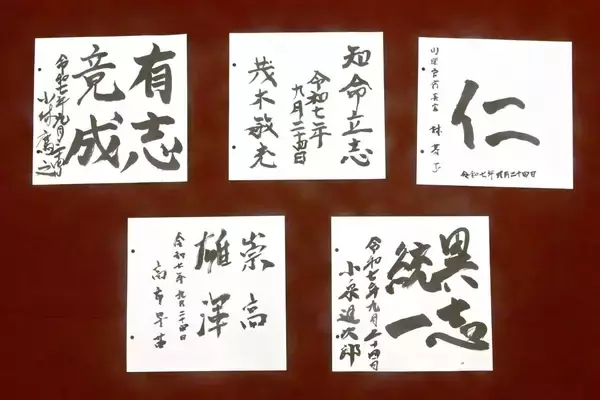 有志
竟成
令和七年九月二十四日
小林鷹之
知命立志
令和七年
九月二十四日
茂木敏充
仁
内閣官房長官 林芳正
令和七年九月二十四日
崇高
雄渾
令和七年九月二十四日
高市早苗
異志
統一
令和七年九月二十四日
小泉進次郎